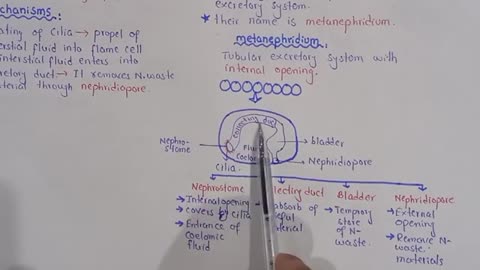 chanisms:
ating of cilia → propel of
rstial fluid into flame cell
interstial fluid enters into
retory duct → It removes N.waste
terial through nephridiopore.
excretory system.
★ their name is metanephridium.
metanephridium:
Tubular excretory system with
internal opening.
collecting duct
Nephro-
stome
Coelomic
cilia
bladder
Nephridiopore
Nephrostome
→ Internal opening
→ covers by cilia
→ Entrance of
coelomic
fluid
llecting duct
absorb of
eful
terial
Bladder
→ Temprory
store of
N-
waste.
Nephridiopore
→ External
opening
→ Remove N-
waste
materials